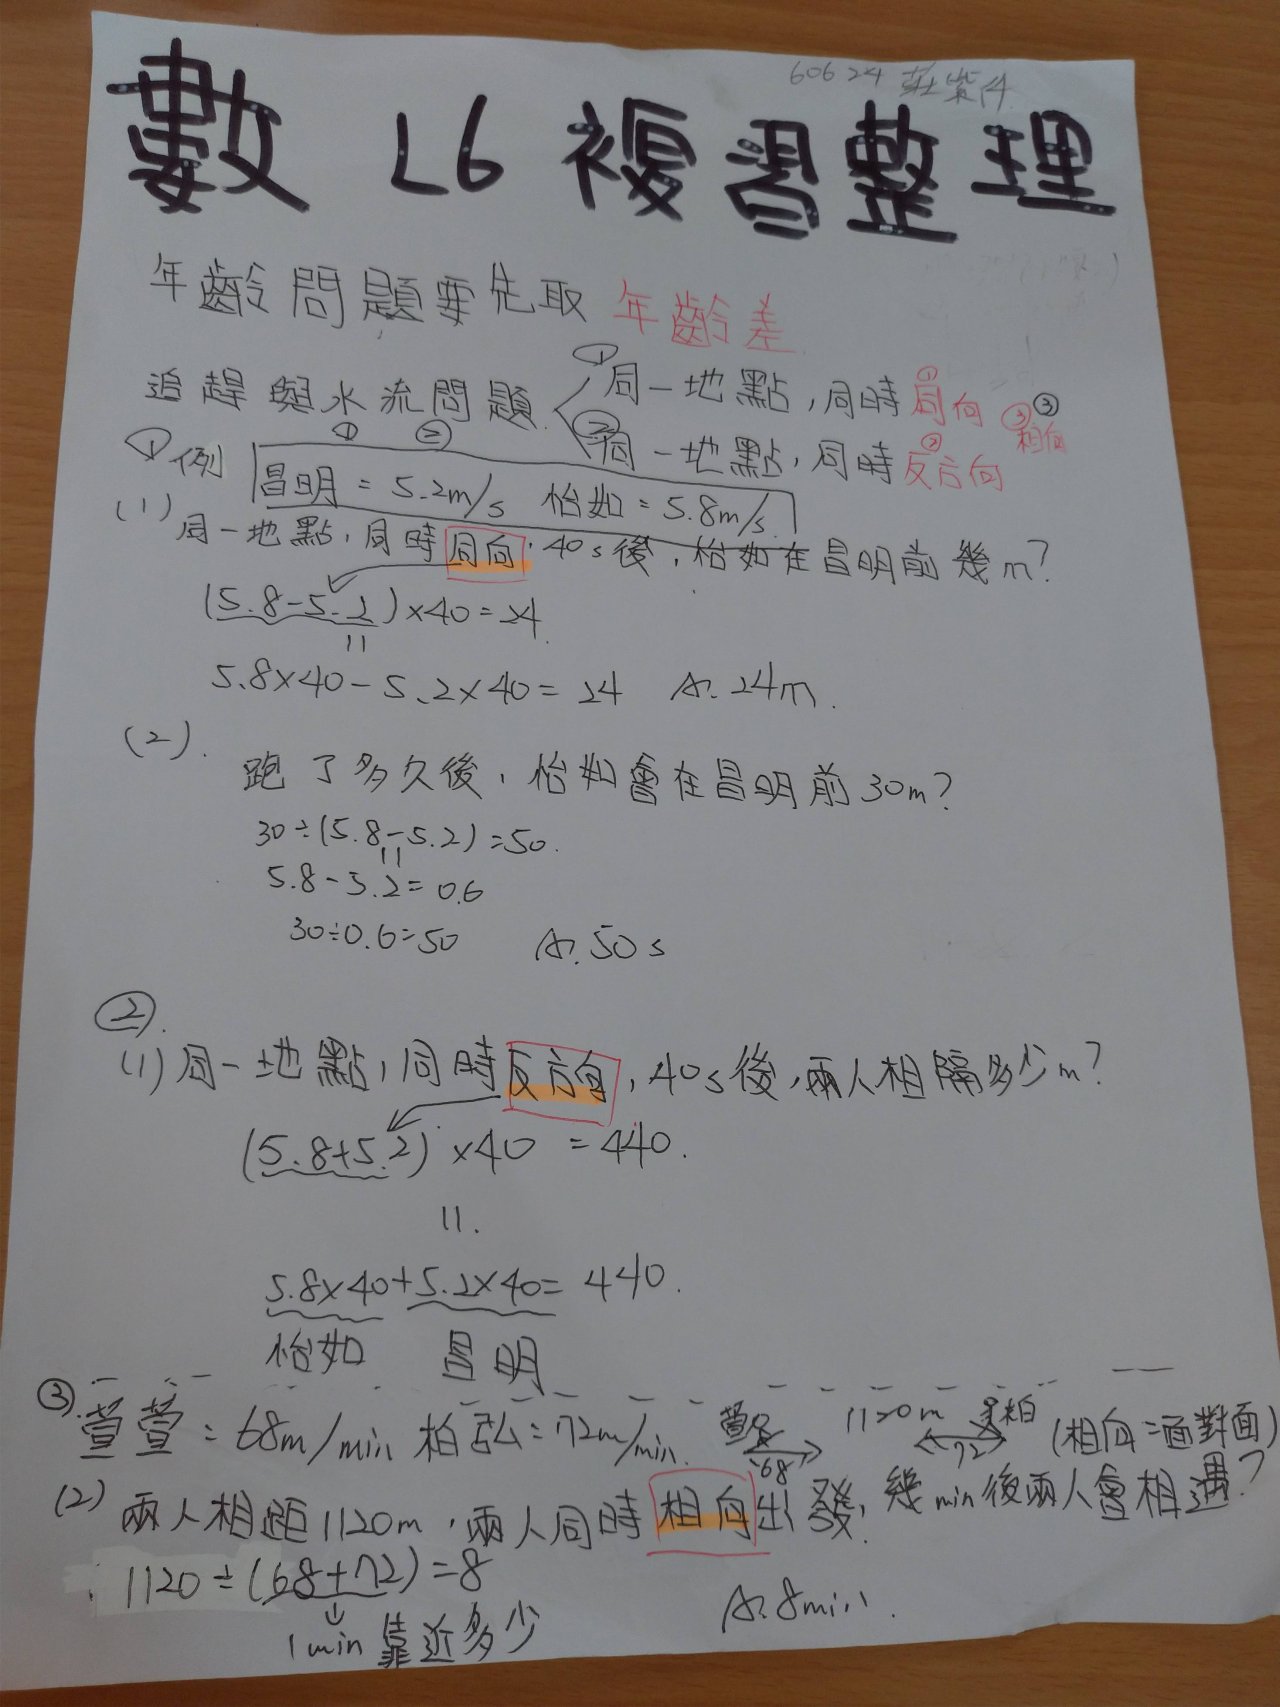 60624 莊紫伶
數 L6 複習整理
年齡問題要先取 年齡差
追趕與水流問題 ① 同一地點,同時①同向 ③③
② 同一地點,同時②反方向 相向
① ②
①例 昌明=5.2m/s 怡如=5.8m/s
(1) 同一地點,同時同向,40s後,怡如在昌明前幾m?
(5.8-5.2)×40=24
=
5.8×40-5.2×40=24 A:24m.
(2).
跑了多久後,怡如會在昌明前30m?
30÷(5.8-5.2)=50.
=
5.8-5.2=0.6
30÷0.6=50 A:50s
②.
(1)同一地點,同時反方向,40s後,兩人相隔多少m?
(5.8+5.2)×40=440.
=.
5.8×40+5.2×40=440.
怡如 昌明
③.萱萱=68m/min 柏弘=72m/min. 萱 68 1120m 72 柏 (相向=面對面)
(2)兩人相距1120m,兩人同時相向出發,幾min後兩人會相遇?
1120÷(68+72)=8
1min靠近多少 A:8min.